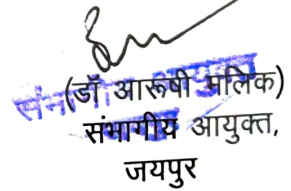 (डॉ आरूषी मलिक)
संभागीय आयुक्त,
जयपुर